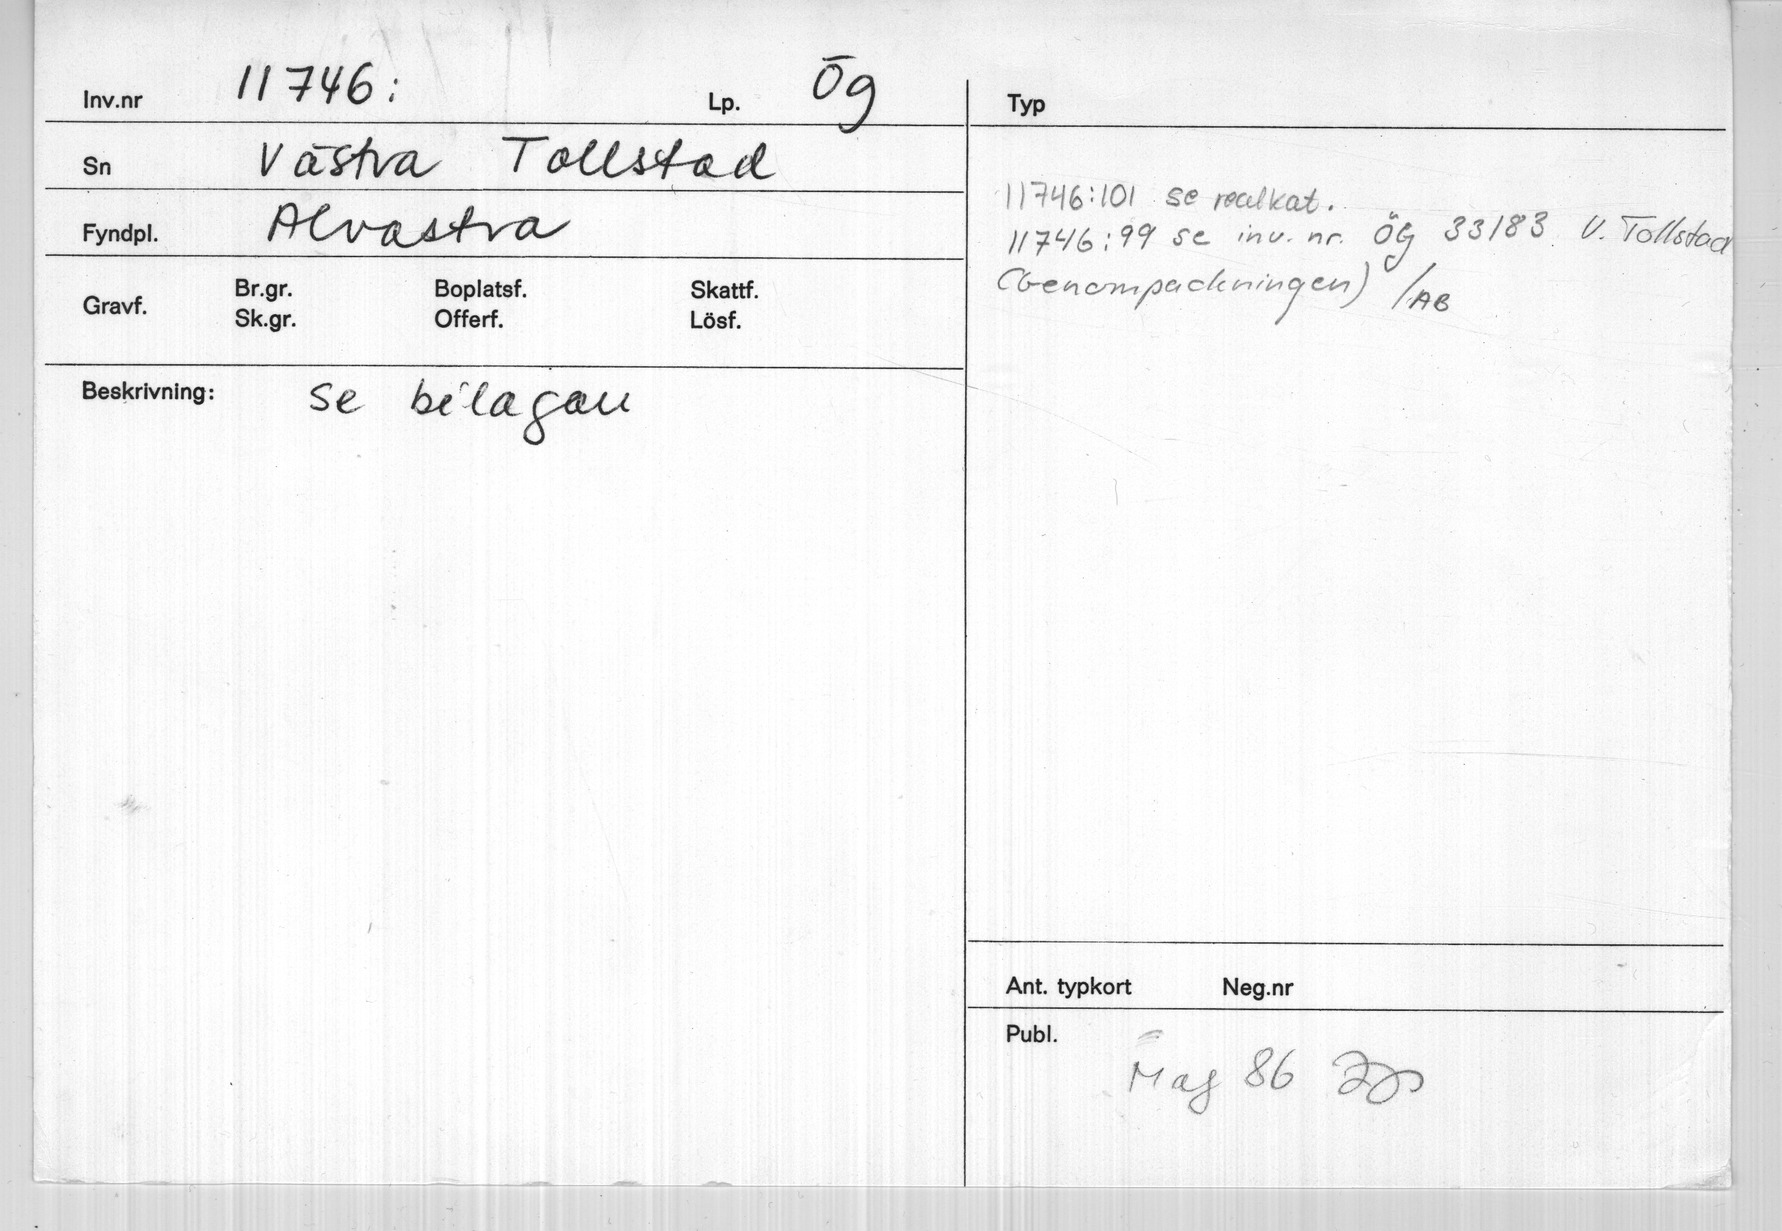 Inv.nr 11746: Lp. Ög
Sn Västra Tollstad
Fyndpl. Alvastra
Gravf. Br.gr. Boplatsf. Skattf.
Sk.gr. Offerf. Lösf.
Beskrivning: se bilagan
Typ
11746:101 se realkat.
11746:99 se inv. nr. ÖG 33183 V. Tollstad
(benompackningen) /AB
Ant. typkort Neg.nr
Publ.
Mag 86